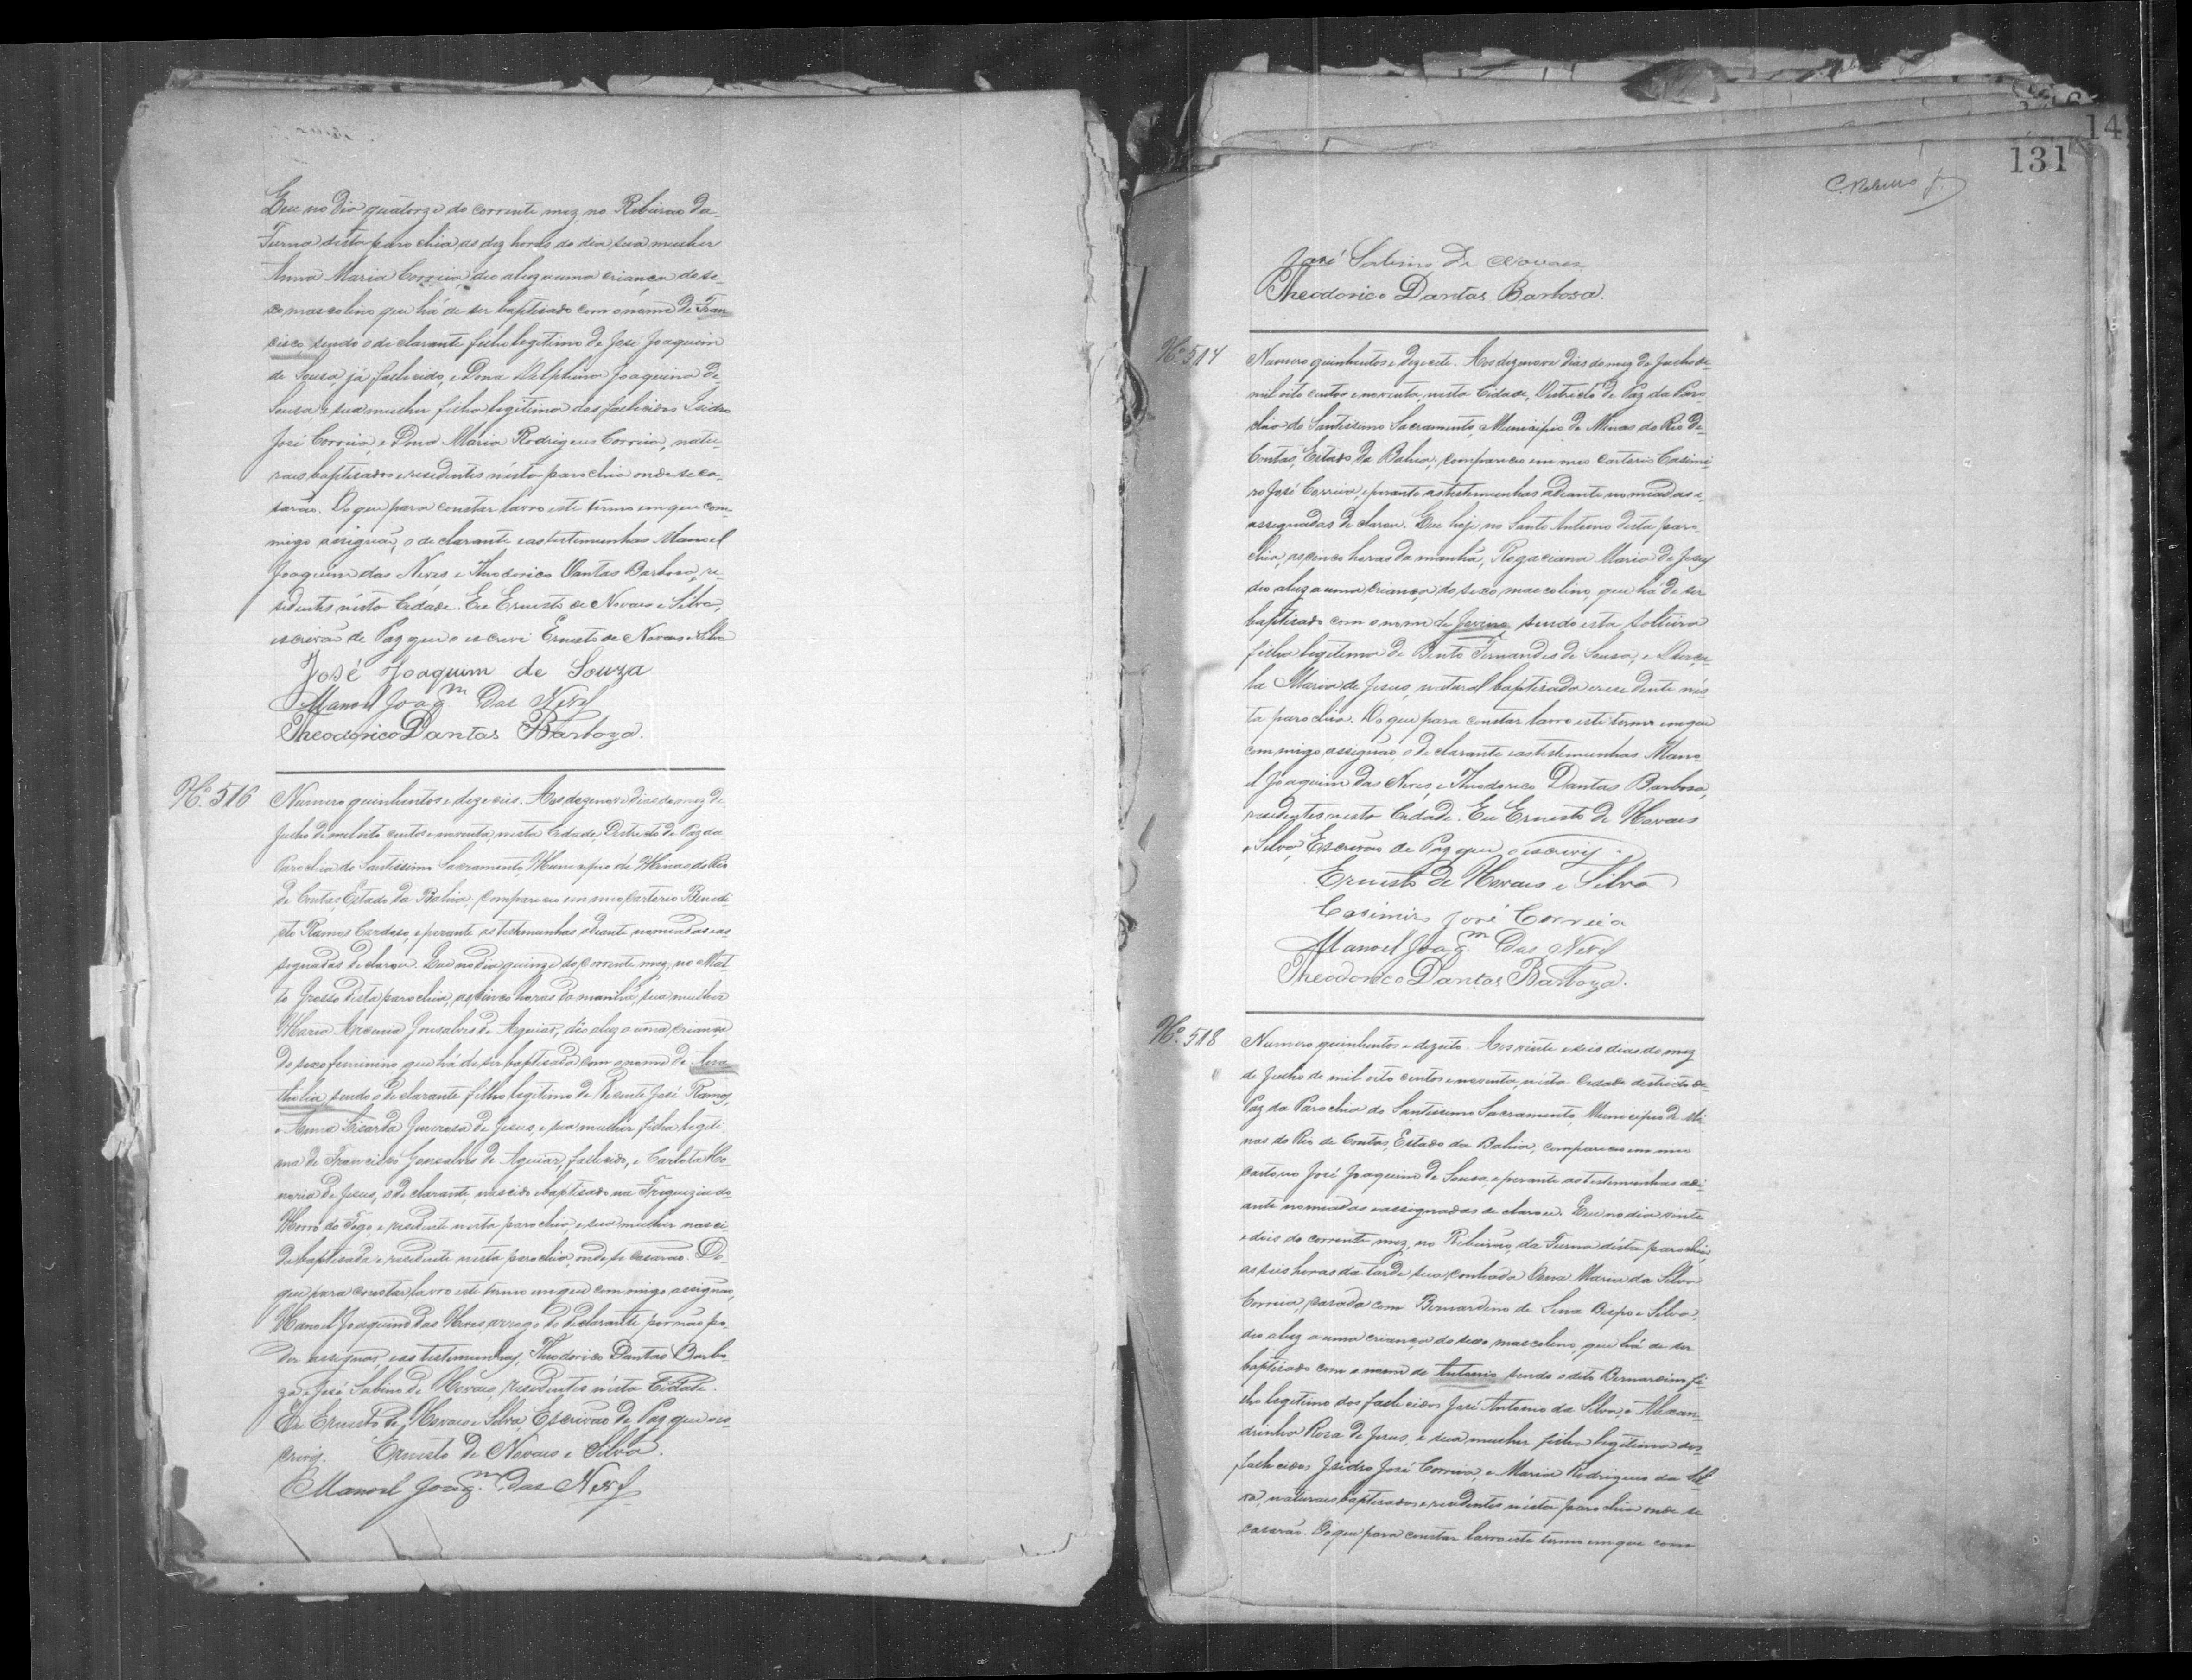 Que no dia quatorze do corrente mez, no Ribeirão da
Furna desta parochia as dez horas do dia sua mulher
Anna Maria Correia, deo a luz a uma criança do se-
xo mascolino que há de ser baptisado com o nome de Fran
cisco sendo o declarante filho legitimo de José Joaquim
de Sousa, já fallecido, e Dona Delphina Joaquina de
Sousa e sua mulher filha legitima dos fallecidos Isidro
José Correia, e Dona Maria Rodrigues Correia, natu-
raes baptisados e residentes nésta parochia onde se ca-
sarão. Do que para constar lavro este termo em que com-
migo assignão, o declarante e as testemunhas Manoel
Joaquim das Neves e Theodorico Dantas Barboza, re-
sidentes nésta Cidade. Eu Ernesto de Novaes e Silva,
escrivão de Paz que o escrevi Ernesto de Novaes e Silva
José Joaquim de Souza
Manoel Joaqm das Neves
Theodorico Dantas Barboza.
No. 516 Numero quinhentos e dezeseis. Aos dezenove dias do mez de
Julho de mil oito centos e noventa, nesta Cidade, Destricto de Paz da
Parochia do Santissimo Sacramento, Municipio de Minas do Rio
de Contas, Estado da Bahia, compareceo em meo Cartorio Benedi
cto Ramos Cardoso, e perante as testemunhas adiante nomeadas e as
segnadas declarou. Que no dia quinze do corrente mez, no Mat
to Grosso desta parochia, as cinco horas da manhã, sua mulher
Maria Arcenia Gonsalves de Aguiar, deo a luz a uma criança
do sexo feminino que há de ser baptisada com o nome de
sendo o declarante filho legitimo de Vicente José Ramos,
e Anna Generosa de Jesus, e sua mulher filha legiti
ma de Francisco Gonsalves de Aguiar, fallecido, e Carlota Ho-
noria de Jesus, o declarante, nascido e baptisado na Freguezia do
Morro do Fogo e residente nesta parochia e sua mulher nasci
da baptisada e residente nesta parochia, onde se casarão. Do
que para constar lavro este termo em que commigo assignão,
Manoel Joaquim das Neves, arrogo do declarante por não po-
der assignar, e as testemunhas, Theodorico Dantas Barbo
za e José Sabino de Novaes, residentes nésta Cidade.
Eu Ernesto de Novaes e Silva Escrivão de Paz que o es-
crevy. Ernesto de Novaes e Silva.
Manoel Joaqm das Neves
14
131
José Sabino de Novaes
Theodorico Dantas Barbosa.
No. 517 Numero quinhentos e dezecete. Aos dezenove dias do mez de Julho de
mil oito centos e noventa, nesta Cidade, Destricto de Paz da Paro
chia do Santissimo Sacramento, Municipio de Minas do Rio de
Contas, Estado da Bahia, compareceo em meo cartorio Casimi
ro José Correia, e perante as testemunhas adiante nomeadas e,
assegnadas declarou. Que hoje no Santo Antonio desta paro
chia, as cinco horas da manhã, Rogaciana Maria de Jesus
deo a luz a uma criança do sexo mascolino, que há de ser
baptisado com o nome de Jovino, sendo esta solteira
filha legitima de Bento Fernandes de Sousa, e
la Maria de Jesus, natural baptisada e residente nés
ta parochia. Do que para constar lavro este termo em que
commigo assignão, o declarante e as testemunhas Mano
el Joaquim das Neves, e Theodorico Dantas Barbosa,
residentes nesta Cidade. Eu Ernesto de Novaes
e Silva, Escrivão de Paz que o escrevy.
Ernesto de Novaes e Silva
Casimiro José Correia
Manoel Joaqm das Neves
Theodorico Dantas Barboza.
No. 518 Numero quinhentos e dezoito. Aos vinte e seis dias do mez
de Julho de mil oito centos e noventa, nésta Cidade destricto de
Paz da Parochia do Santissimo Sacramento, Municipio de Mi
nas do Rio de Contas, Estado da Bahia, compareceo em meo
cartorio José Joaquim de Sousa, e perante as testemunhas adi
ante nomeadas e assegnadas declarou. Que no dia vinte
e dois do corrente mez, no Ribeirão da Furna desta parochia,
as seis horas da tarde sua cunhada Anna Maria da Silva
Correia, casada com Bernardino de Sena Bispo e Silva,
deo a luz a uma criança do sexo mascolino, que há de ser
baptisado com o nome de Antonio sendo o dito Bernardino fi-
lho legitimo dos fallecidos José Antonio da Silva, e Alexan-
drinha Rosa de Jesus, e sua mulher filha legitima dos
fallecidos Isidro José Correia, e Maria Rodrigues da Sil
va, naturaes baptisados e residentes nésta parochia onde se
casarão. Do que para constar lavro este termo em que com